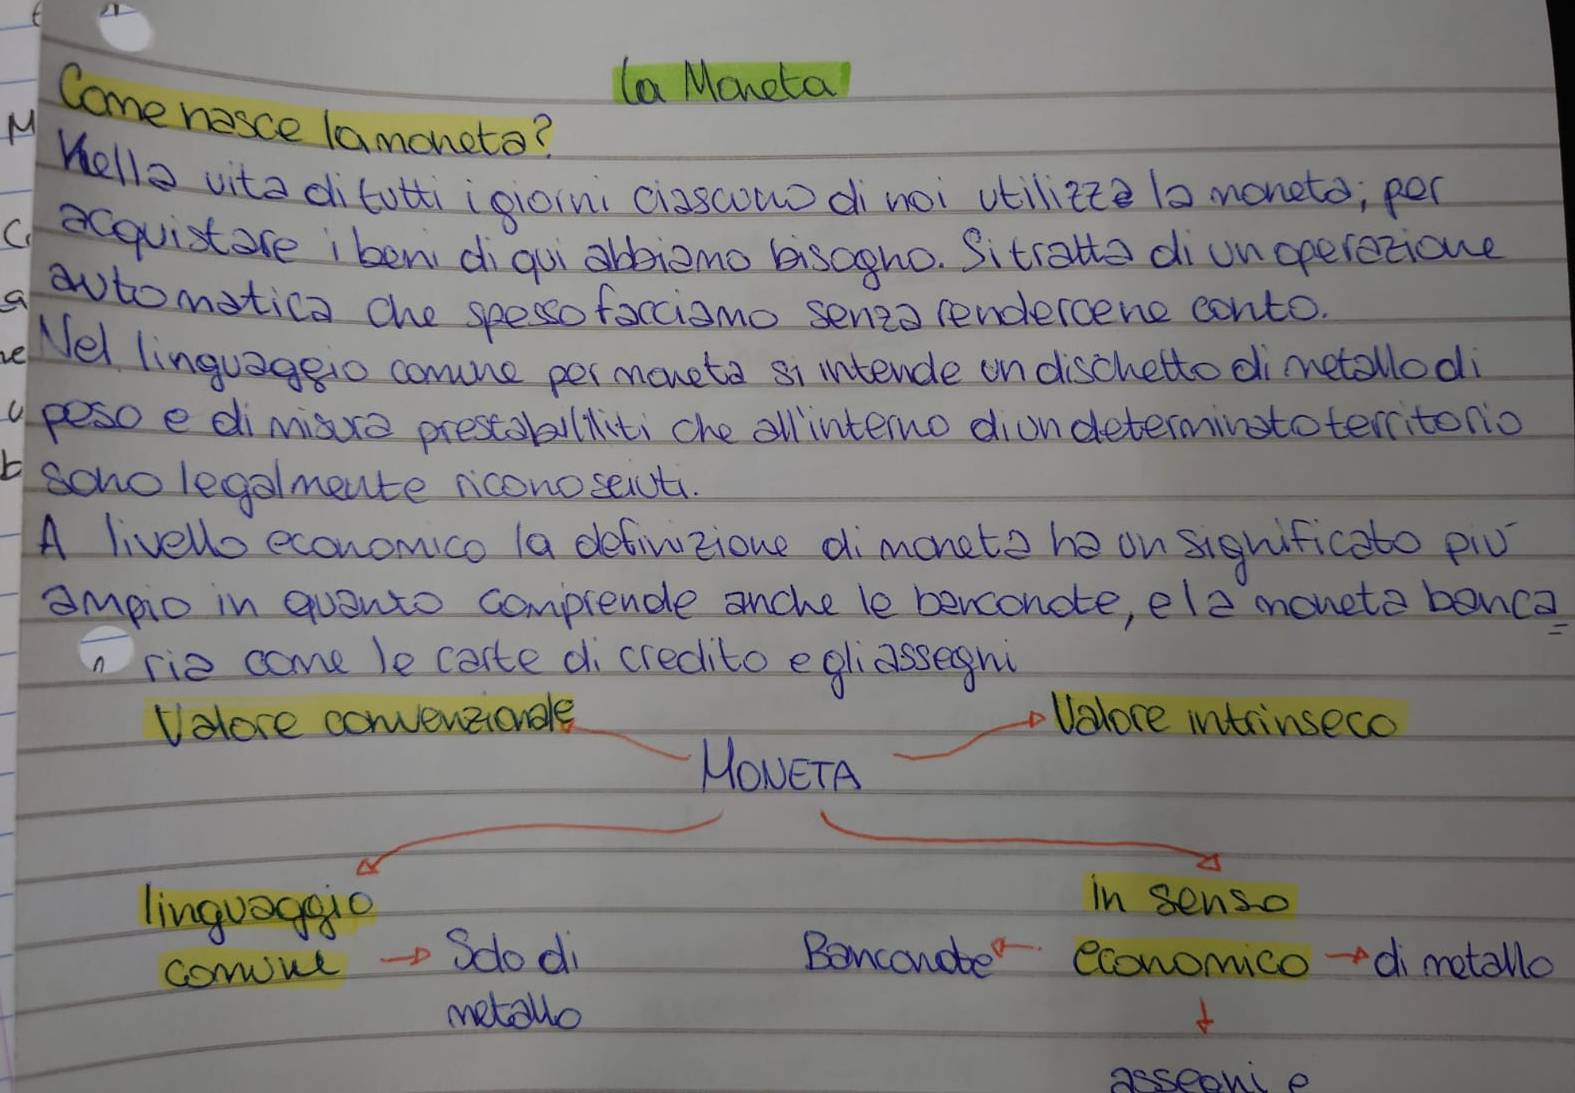 La Moneta
Come nasce la moneta?
Nella vita di tutti i giorni ciascuno di noi utilizza la moneta; per
acquistare i beni di qui abbiamo bisogno. Si tratta di un operazione
automatica che spesso facciamo senza rendercene conto.
Nel linguaggio comune per moneta si intende un dischetto di metallo di
peso e di misura prestabiliti che all'interno di un determinato territorio
sono legalmente riconosciuti.
A livello economico la definizione di moneta ha un significato più
ampio in quanto comprende anche le banconote, e la moneta banca=
ria come le carte di credito e gli assegni
Valore convenzionale
Valore intrinseco
MONETA
linguaggio
comune
Solo di
metallo
in senso
economico
Banconote
di metallo
assegni e